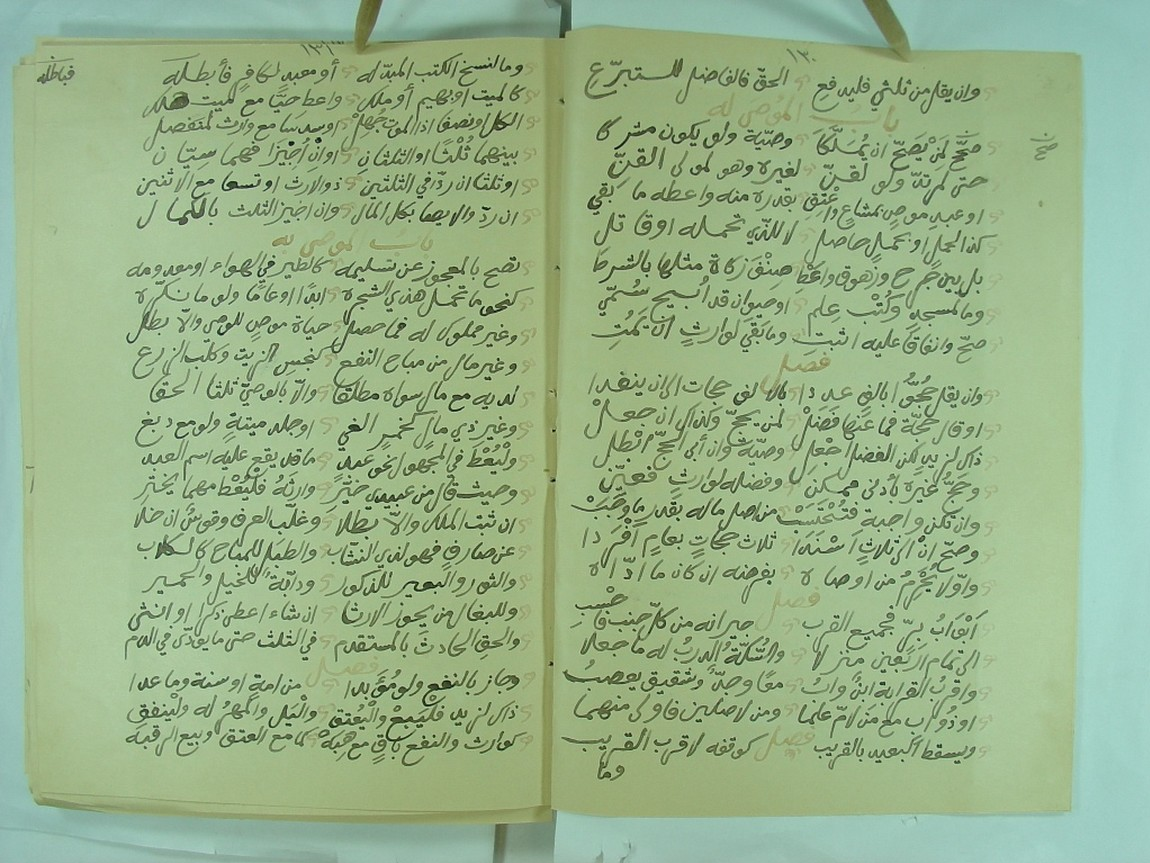 ١٣٠
وان يقل من ثلثي فليدفع الحق فالفاضل للمتبرع
باب الموصى له
صح لمن يصح ان يملكا وصية ولو يكون مشركا
حتى لمرتد ولو لقن لغيره وهو لمولى القن
او عبد موص بمشاع واعتق بقدره منه واعطه ما بقي
كذا لحمل او بحمل حاصل لا للذي تحمله او قاتل
بل بين جرح وزهوق واعط صنف زكاة مثلها بالشرط
وما لمسجد وكتب علم
صح وانفاقا عليه اثبت وما بقي لوارث ان يمت
فصل
وان يقل حجوا بالف عددا بالالف حجات الى ان ينفدا
او قال حجة فما عنها فضل لمن يحج وكذاك ان جعل
ذاك لزيد لكن الفضل اجعل وصية وان أبى الحج ابطل
وحج غيره بأدنى ممكن وفضله لوارث فعين
وان تكن واجبة فتحتسب من اصل ماله بقدر ما وجب
وصح ثلاث حجات بعام أفردا
بفرضه ان كان ما اداه
فصل
فجميع القرب جيرانه من كل جنب فاحسب
الى تمام أربعين منزلا والسكة الدرب له ما جعلا
واقرب القرابة ابن واب معا وجد وشقيق يعصب
او ذو اب مع من لام علما ومن لاصلين فاولى منهما
فصل
ويسقط البعيد بالقريب كوقفه لاقرب القريب
وما
وما لنسخ الكتب المبدله أو معبد لكافر فأبطله
فباطله
كالميت او بهيم أو ملك واعط حيا مع لميت هلك
الكل او نصفا اذا الموت جهل او سدسا مع وارث لمنفصل
بينهما ثلثا او الثلثان او ان اجيزا فهما سيان
او ثلثا ان رد في الثلثين ذو الارث او تسعا مع الاثنين
ان رد والايصا بكل المال وان اجيز الثلث بالكمال
باب الموصى به
تصح بالمعجوز عن تسليمه كالطير في الهواء او معدومه
كنحو ما تحمل هذي الشجره ابدا او عاما ولو ما نكره
وغير مملوك له فما حصل حياة موص للموصى والا بطل
وغير مال من مباح النفع كنجس الزيت وكلب الزرع
لديه مع مال سواه مطلقا والا بالموصى ثلثا الحقا
وغير ذي مال كخمير الغي او جلد ميتة ولو مع دبغ
وليعط في المجهول نحو عبد ما قد يقع عليه اسم العبد
وحيث قال من عبيدي خير وارثه فليعط مهما يختر
ان ثبت الملك والا بطلا وغلب العرف وقوس ان خلا
عن صارف فهو لذي النشاب والطبل للمباح كالكلاب
والثور والبعير للذكور ودابة للخيل والحمير
وللبغال من يحوز الارثا ان شاء اعطى ذكرا او انثى
والحق الحادث بالمستقدم في الثلث حتى ما يؤدى في الدم
فصل
وجاز بالنفع ولو مؤبدا من امة او سنة وما عدا
ذاك لزيد فليبع وليعتق والنيل والمهر له ولينفق
كوارث والنفع باق مع هبه كما مع العتق وبيع الرقبه